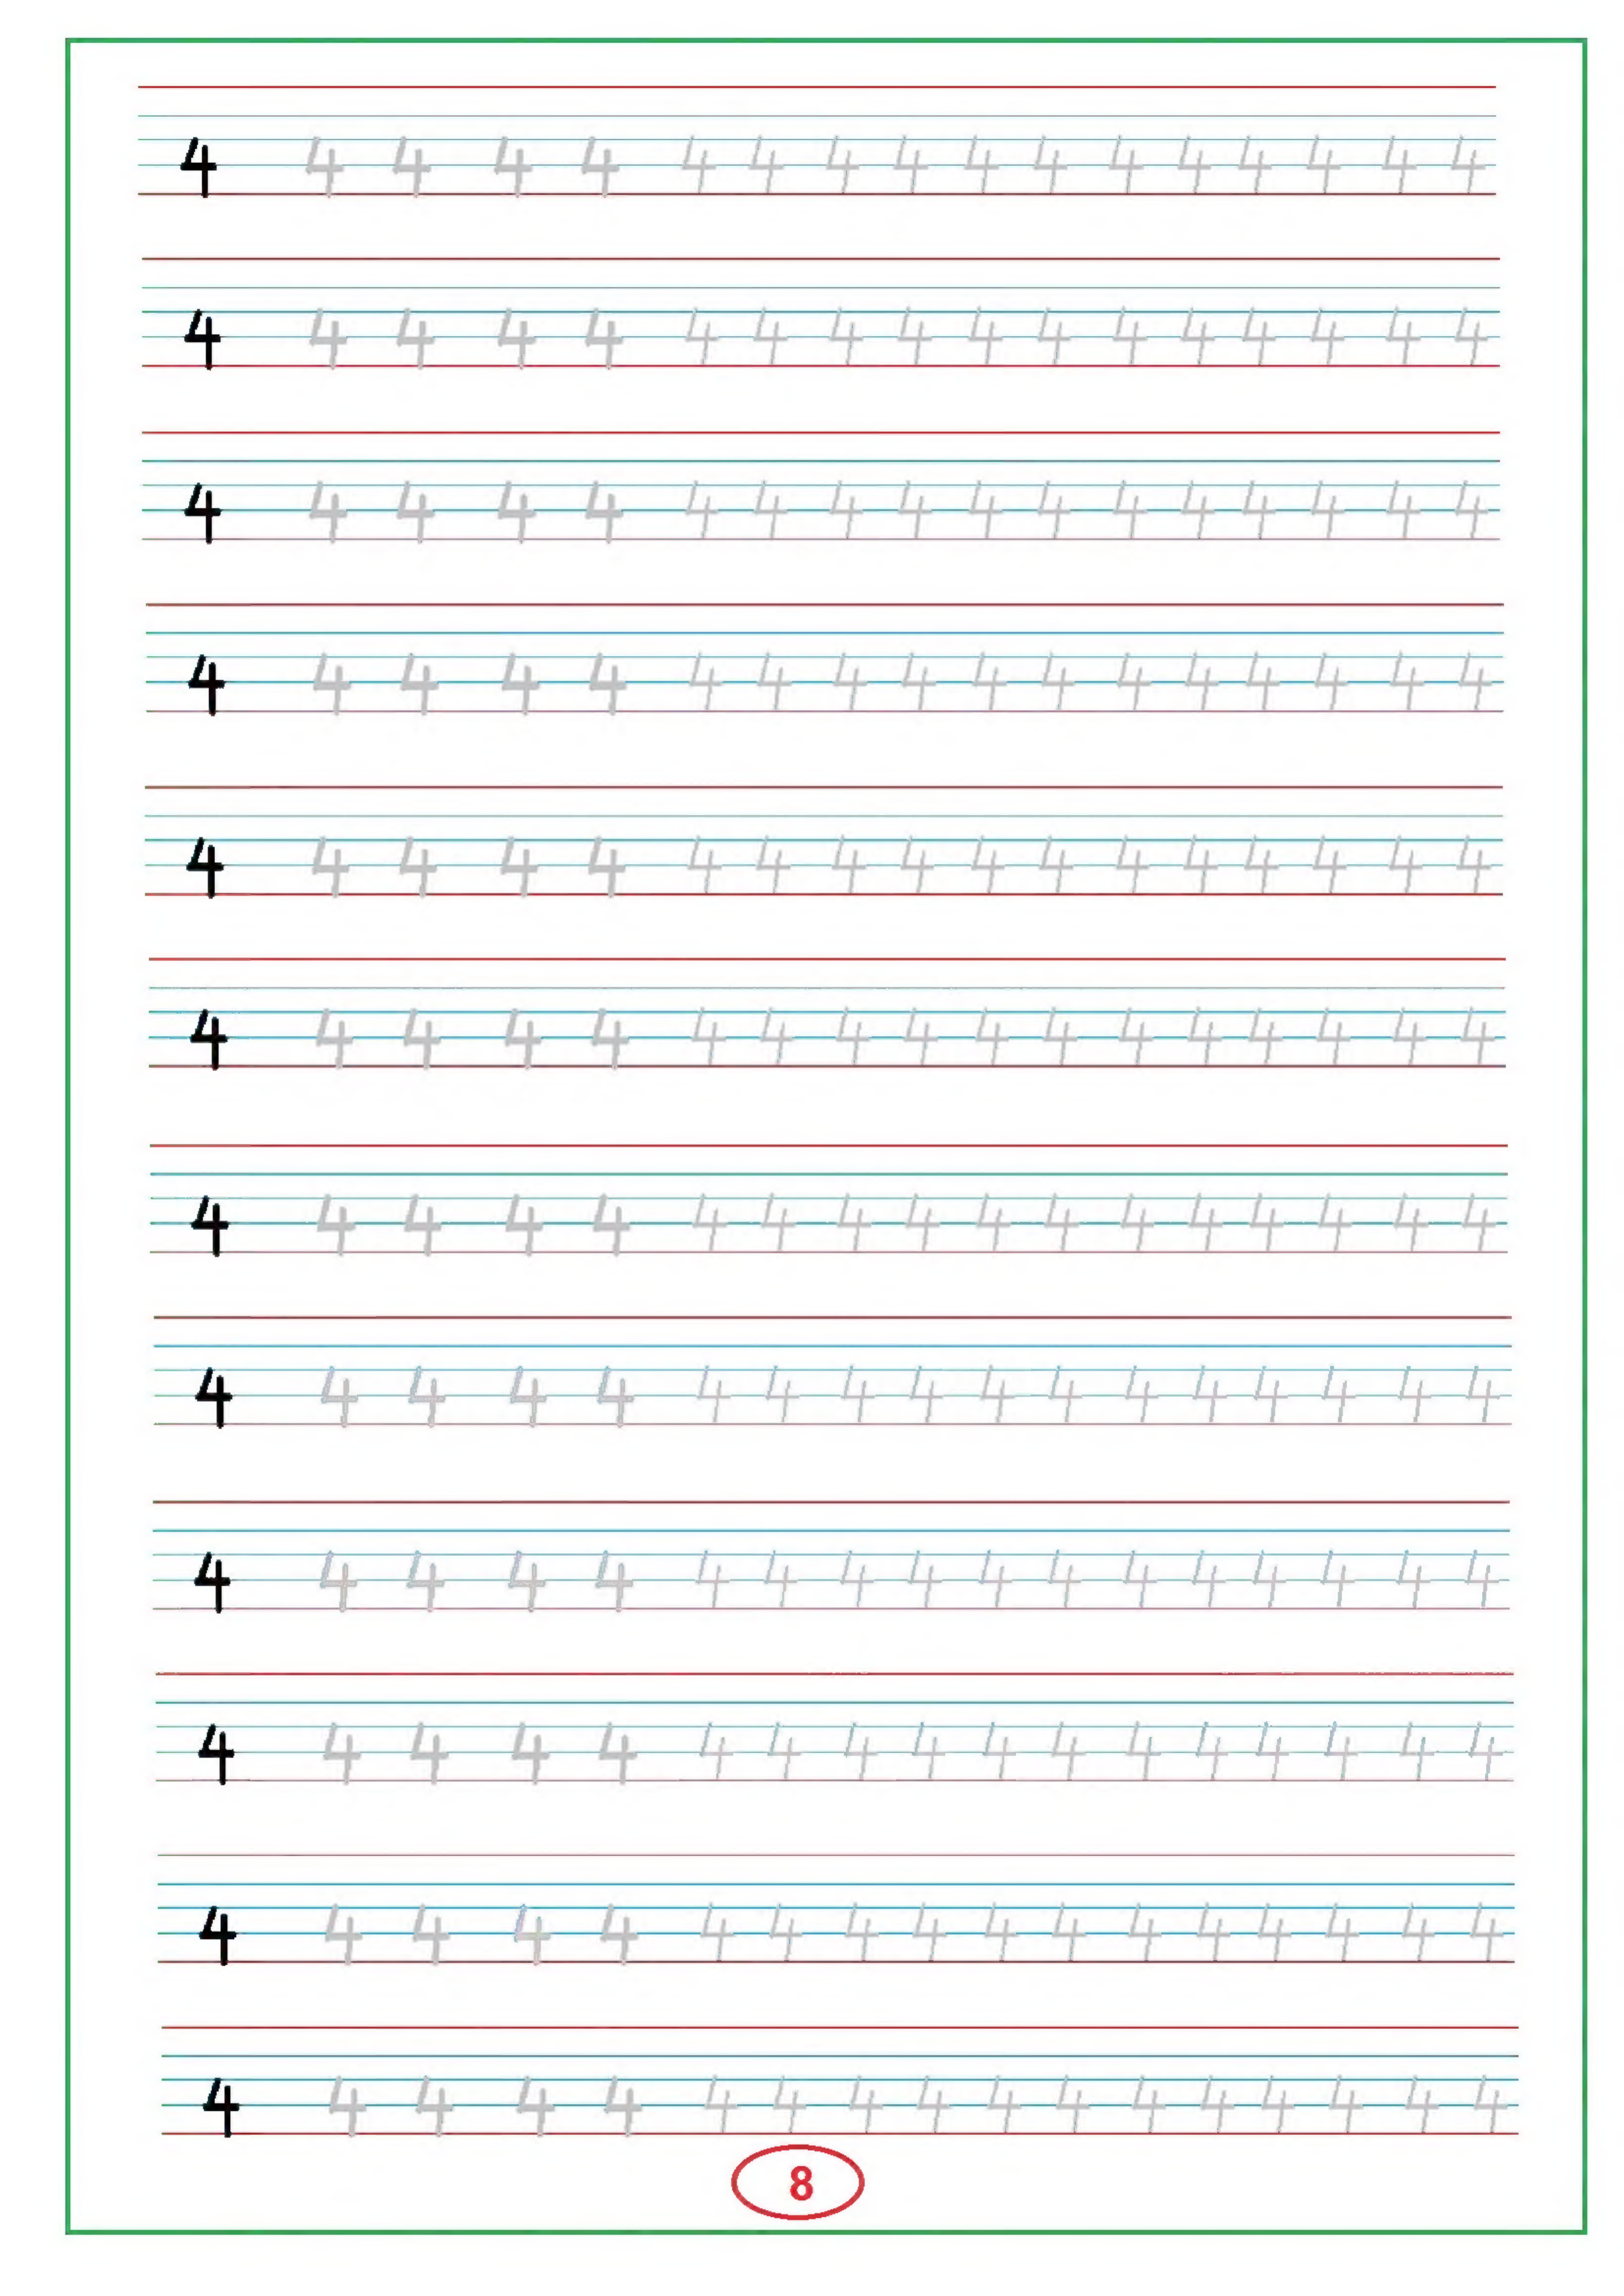 4 4 4 4 4 4 4 4 4 4 4 4 4 4 4 4 4
4 4 4 4 4 4 4 4 4 4 4 4 4 4 4 4 4
4 4 4 4 4 4 4 4 4 4 4 4 4 4 4 4 4
4 4 4 4 4 4 4 4 4 4 4 4 4 4 4 4 4
4 4 4 4 4 4 4 4 4 4 4 4 4 4 4 4 4
4 4 4 4 4 4 4 4 4 4 4 4 4 4 4 4 4
4 4 4 4 4 4 4 4 4 4 4 4 4 4 4 4 4
4 4 4 4 4 4 4 4 4 4 4 4 4 4 4 4 4
4 4 4 4 4 4 4 4 4 4 4 4 4 4 4 4 4
4 4 4 4 4 4 4 4 4 4 4 4 4 4 4 4 4
4 4 4 4 4 4 4 4 4 4 4 4 4 4 4 4 4
4 4 4 4 4 4 4 4 4 4 4 4 4 4 4 4 4
8